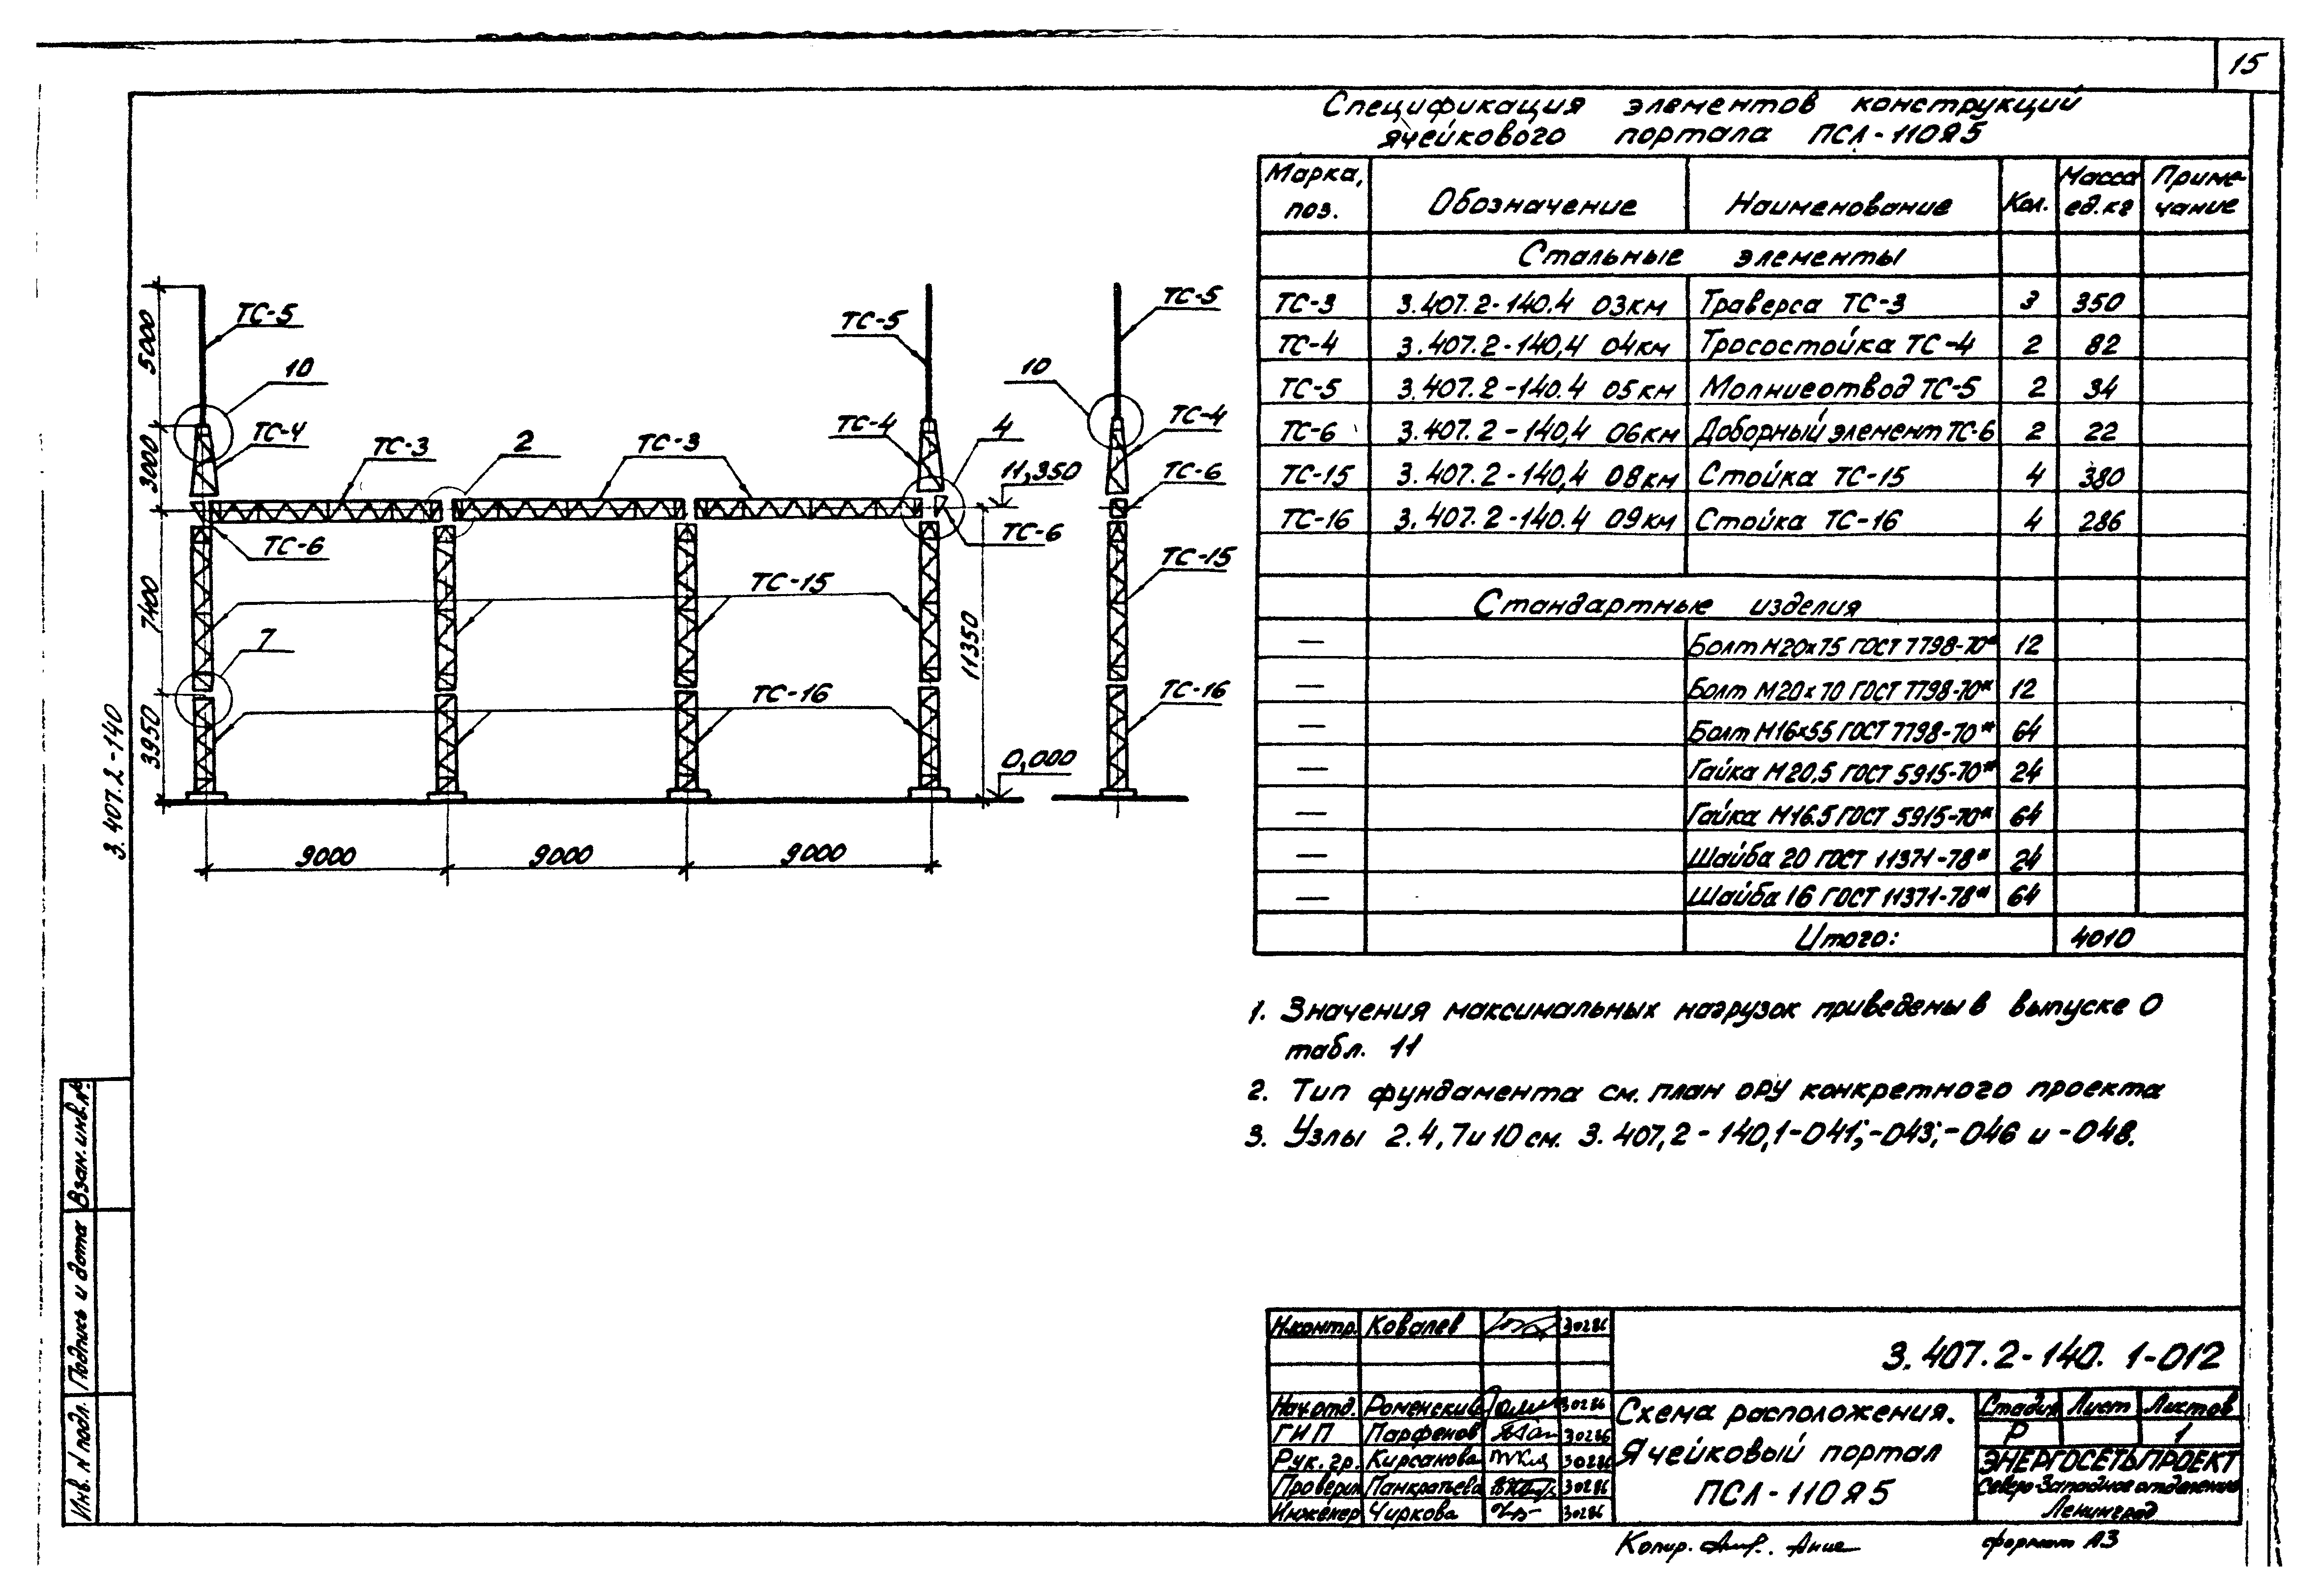 15
Спецификация элементов конструкций
ячейкового портала ПСЛ-110Я5
Марка, поз. Обозначение Наименование Кол. Масса ед.кг Приме-чание
Стальные элементы
ТС-3 3.407.2-140.4 03км Траверса ТС-3 3 350
ТС-4 3.407.2-140,4 04км Тросостойка ТС-4 2 82
ТС-5 3.407.2-140.4 05км Молниеотвод ТС-5 2 34
ТС-6 3.407.2-140,4 06км Доборный элемент ТС-6 2 22
ТС-15 3.407.2-140,4 08км Стойка ТС-15 4 380
ТС-16 3.407.2-140.4 09км Стойка ТС-16 4 286
Стандартные изделия
— Болт М20х75 ГОСТ 7798-70* 12
— Болт М20х70 ГОСТ 7798-70* 12
— Болт М16х55 ГОСТ 7798-70* 64
— Гайка М20,5 ГОСТ 5915-70* 24
— Гайка М16.5 ГОСТ 5915-70* 64
— Шайба 20 ГОСТ 11371-78* 24
— Шайба 16 ГОСТ 11371-78* 64
Итого: 4010
ТС-5
10
ТС-4
ТС-3
2
ТС-3
ТС-5
ТС-4
4
11,350
ТС-6
ТС-6
7
ТС-15
ТС-16
0,000
11350
5000
3000
7400
3950
9000
9000
9000
10
ТС-5
ТС-4
ТС-6
ТС-15
ТС-16
3.407.2-140
1. Значения максимальных нагрузок приведены в выпуске 0
табл. 11
2. Тип фундамента см. план ОРУ конкретного проекта
3. Узлы 2.4,7и10 см. 3.407,2-140,1-041;-043;-046 и -048.
Взам.инв.№
Подпись и дата
Инв. N подл.
Н.контр. Ковалев 30286
Нач.отд. Роменский 30286
ГИП Парфенов 30286
Рук.гр. Кирсанова 30286
Проверил Панкратьева 30286
Инженер Чиркова 30286
3.407.2-140. 1-012
Схема расположения.
Ячейковый портал
ПСЛ-110Я5
Стадия Лист Листов
Р 1
ЭНЕРГОСЕТЬПРОЕКТ
Северо-Западное отделение
Ленинград
Копир.
формат А3